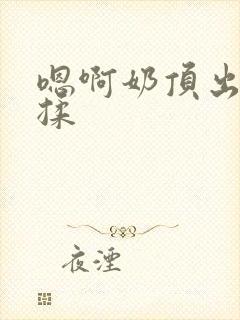 嗯啊奶頂出
揉
夜湮